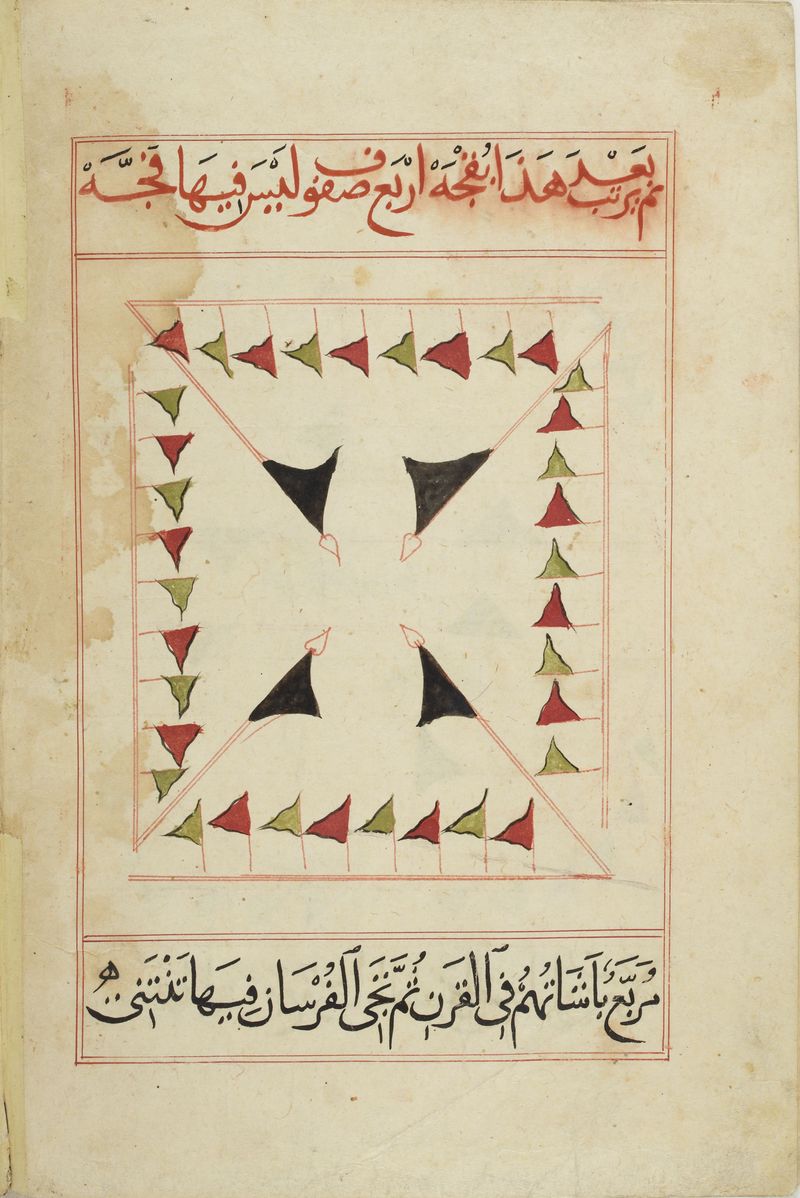 ثم يرتب بعْدَ هَذَا بفجْهَ اربْع صفوف ليْسَ فِيهَا فَجَّهْ
مُرَبَّعْ بَاشَاتُهُمْ فِي الْقَرَنِ ثُمَّ تَجِي الْفُرْسَانِ فِيهَا تَنْثَنِي